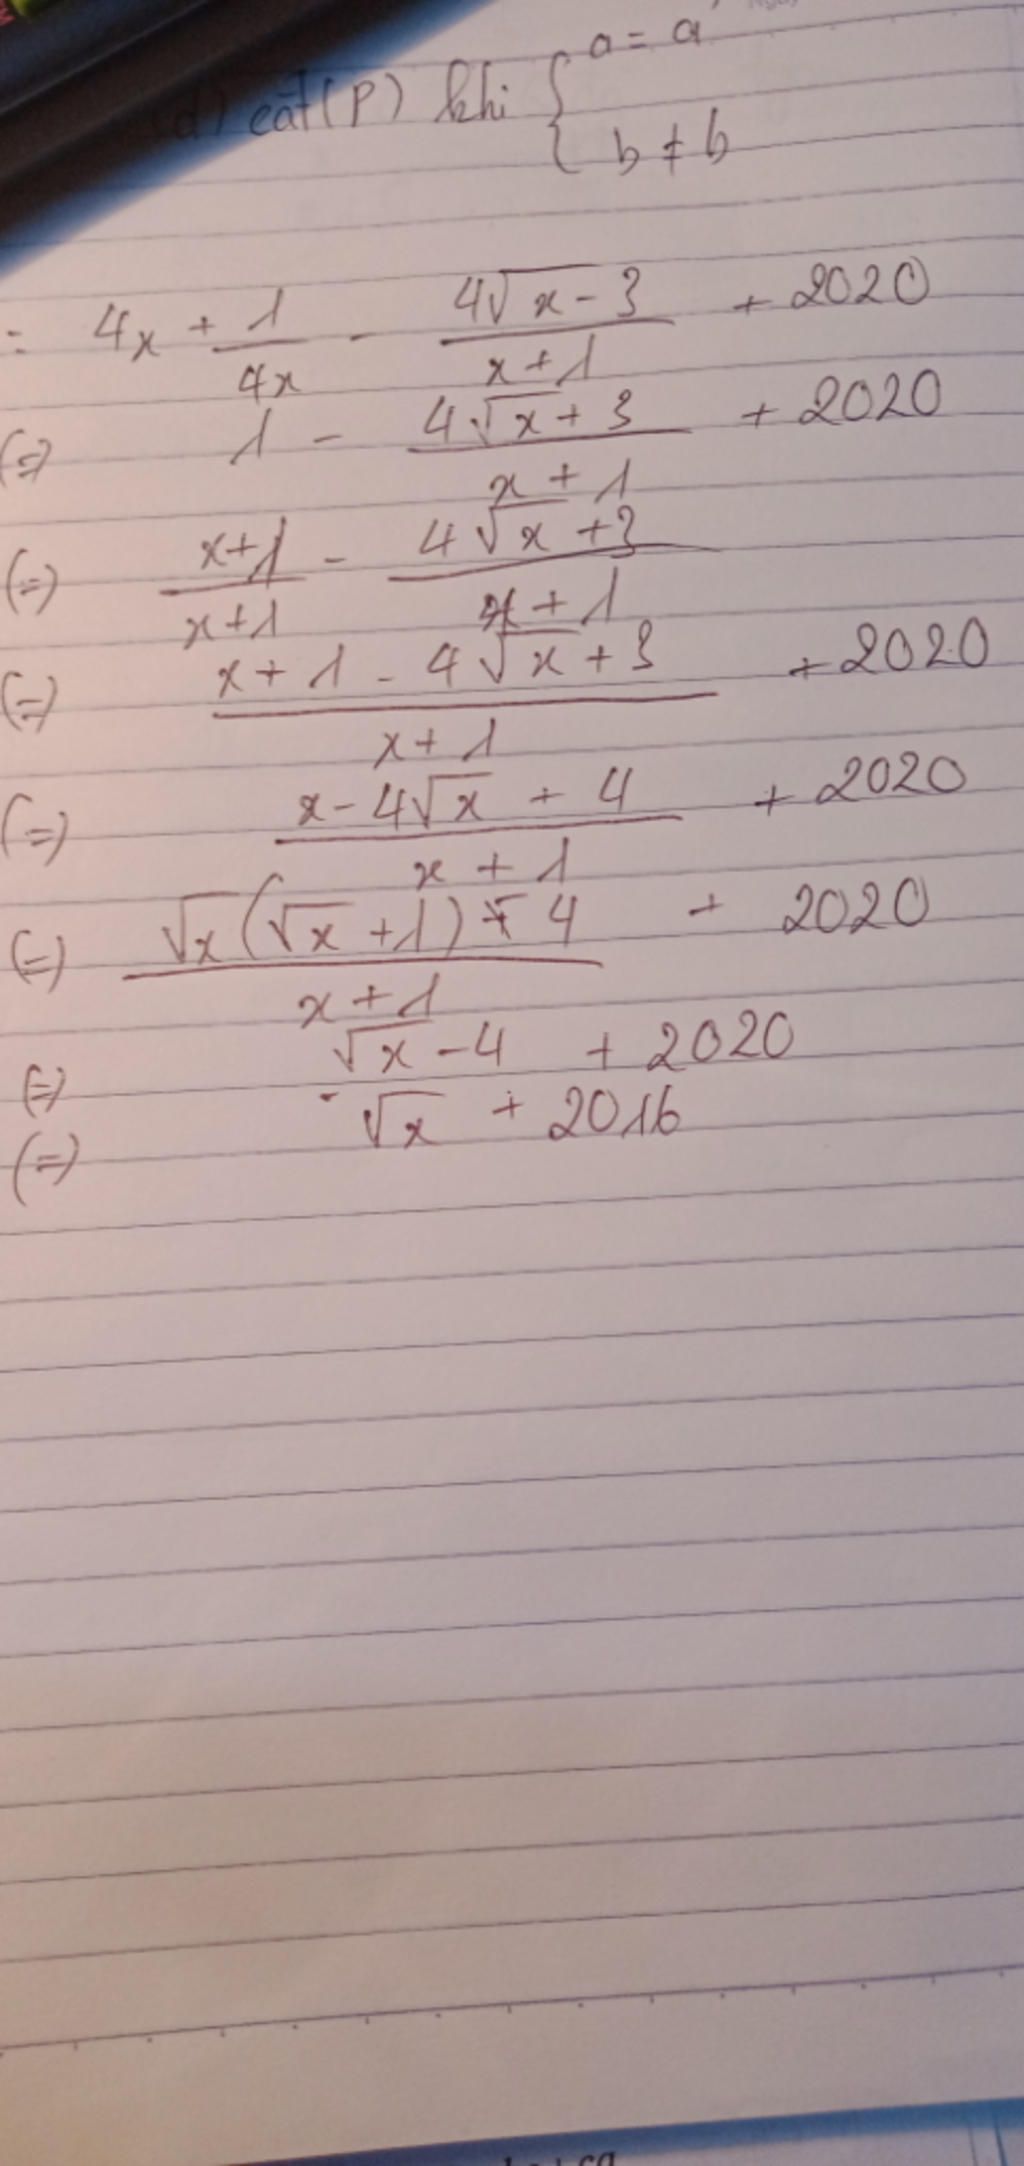 d) cắt (P) khi { a = a'
b ≠ b
= 4x + 1/4x - (4√x - 3)/(x + 1) + 2020
(=) 1 - (4√x + 3)/(x + 1) + 2020
(=) (x+1)/(x+1) - (4√x + 3)/(x + 1)
(=) (x + 1 - 4√x + 3)/(x + 1) + 2020
(=) (x - 4√x + 4)/(x + 1) + 2020
(=) (√x(√x + 1) - 4)/(x + 1) + 2020
(=) √x - 4 + 2020
(=) √x + 2016